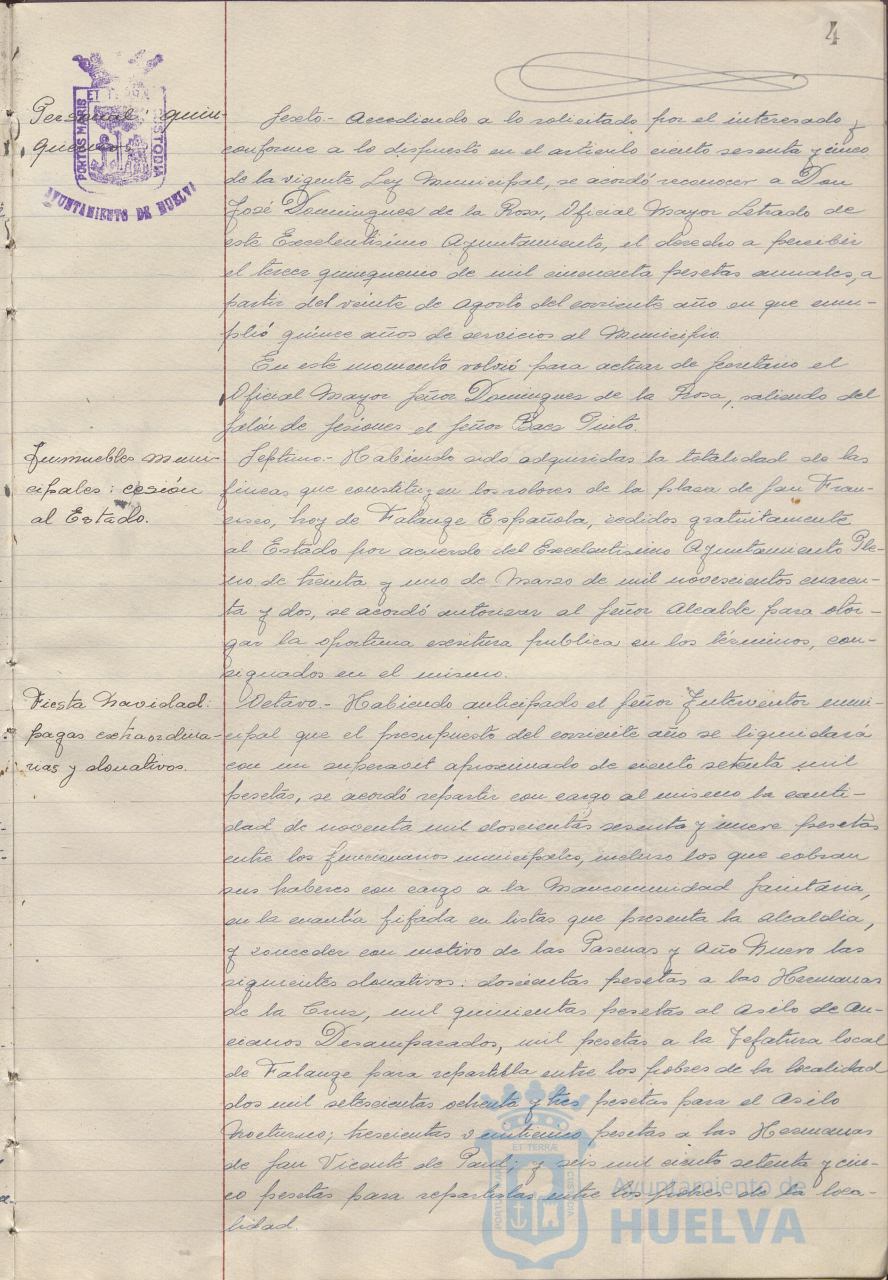 4
ET TERRA
PORTUS MARIS
CUSTODIA
AYUNTAMIENTO DE HUELVA
Personal: quin-
quenios
Sexto.- Accediendo a lo solicitado por el interesado y
conforme a lo dispuesto en el artículo ciento sesenta y cinco
de la vigente Ley Municipal, se acordó reconocer a Don
José Dominguez de la Rosa, Oficial Mayor Letrado de
este Excelentísimo Ayuntamiento, el derecho a percibir
el tercer quinquenio de mil cincuenta pesetas anuales, a
partir del veinte de Agosto del corriente año en que cum-
plió quince años de servicios al Municipio.
En este momento volvió para actuar de Secretario el
Oficial Mayor Señor Dominguez de la Rosa, saliendo del
Salón de Sesiones el Señor Baez Pinto.
Inmuebles muni-
cipales: cesión
al Estado.
Séptimo.- Habiendo sido adquiridas la totalidad de las
fincas que constituyen los solares de la plaza de San Fran-
cisco, hoy de Falange Española, cedidos gratuitamente
al Estado por acuerdo del Excelentísimo Ayuntamiento Ple-
no de treinta y uno de Marzo de mil novescientos cuaren-
ta y dos, se acordó autorizar al Señor Alcalde para otor-
gar la oportuna escritura publica en los términos, con-
signados en el mismo.
Fiesta Navidad:
pagas extraordina-
rias y donativos.
Octavo.- Habiendo anticipado el Señor Interventor muni-
cipal que el presupuesto del corriente año se liquidará
con un superavit aproximado de ciento setenta mil
pesetas, se acordó repartir con cargo al mismo la canti-
dad de noventa mil doscientas sesenta y nueve pesetas
entre los funcionarios municipales, incluso los que cobran
sus haberes con cargo a la Mancomunidad Sanitaria,
en la cuantía fijada en listas que presenta la Alcaldia,
y conceder con motivo de las Pascuas y Año Nuevo las
siguientes donativos: doscientas pesetas a las Hermanas
de la Cruz, mil quinientas pesetas al Asilo de An-
cianos Desamparados, mil pesetas a la Jefatura local
de Falange para repartirla entre los pobres de la localidad
dos mil setescientas ochenta y tres pesetas para el Asilo
Nocturno; trescientas veinticinco pesetas a las Hermanas
de San Vicente de Paul; y seis mil ciento setenta y cin-
co pesetas para repartirlas entre los pobres de la loca-
lidad.
ET TERRÆ
PORTUS MARIS
CUSTODIA
Ayuntamiento de
HUELVA